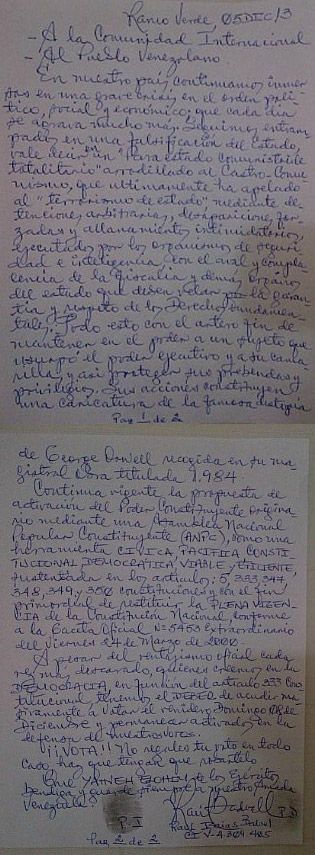 Ramo Verde, 05DIC/13
- A la Comunidad Internacional
- Al Pueblo Venezolano
En nuestro país, continuamos inmer
sos en una grave crisis en el orden polí-
tico, social y económico, que cada día
se agrava mucho más. Seguimos entram
pados en una falsificación del Estado,
vale decir un "para estado comunistoide
totalitario" arrodillado al Castro-Comu
nismo, que ultimamente ha apelado
al "terrorismo de estado" mediante de-
tenciones arbitrarias, desapariciones for-
zadas y allanamientos intimidatorios,
ejecutados por los organismos de seguri-
dad e inteligencia, con el aval y compla-
cencia de la fiscalía y demás órganos
del estado que deben velar por la garan-
tía y respeto de los Derechos fundamen-
tales. Todo esto con el artero fin de
mantener en el poder a un sujeto que
usurpó el poder ejecutivo y a su cama-
rilla, y así proteger sus prebendas y
privilegios. Sus acciones constituyen
una caricatura de la famosa distopía
Pag 1 de 2
de George Orwell recogida en su ma-
gistral obra titulada 1.984
Continua vigente la propuesta de
activación del Poder Constituyente origina-
rio mediante una Asamblea Nacional
Popular Constituyente (ANPC), como una
herramienta CIVICA, PACIFICA CONSTI-
TUCIONAL DEMOCRATICA VIABLE y EFICIENTE
sustentada en los artículos: 5, 333, 347,
348, 349 y 350 constitucionales y con el fin
primordial de restituir la PLENA VIGEN-
CIA de la Constitución Nacional, conforme
a la Gaceta Oficial Nº 5453 Extraordinario
del viernes 24 de Marzo de 2000.
A pesar del ventajismo oficial cada
vez más descarado, quienes creemos en la
DEMOCRACIA, en función del artículo 333 Cons
titucional, tenemos el DEBER de acudir ma-
sivamente a votar el venidero Domingo 08 de
Diciembre y permanecer activados en la
defensa de nuestros votos.
¡¡¡VOTA!!! No regales tu voto en todo
caso, hay que tengan que robártelo
Que de los Ejércitos
bendiga y guarde siempre a nuestra Amada
Venezuela!
Raúl Baduel
P.I P.D
Raúl Isaías Baduel
CI V-4.369.465
Pag 2 de 2